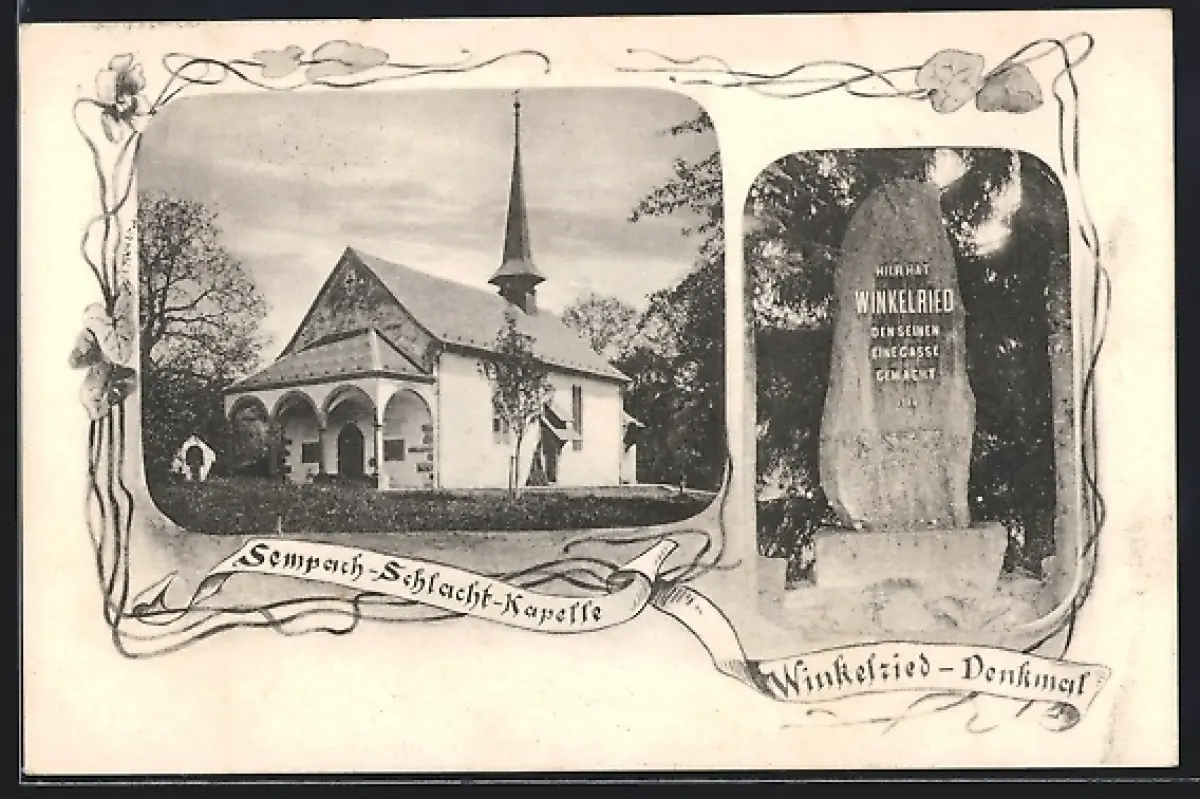 Sempach-Schlacht-Kapelle
HIER HAT
WINKELRIED
DEN SEINEN
EINE GASSE
GEMACHT
Winkelried - Denkmal